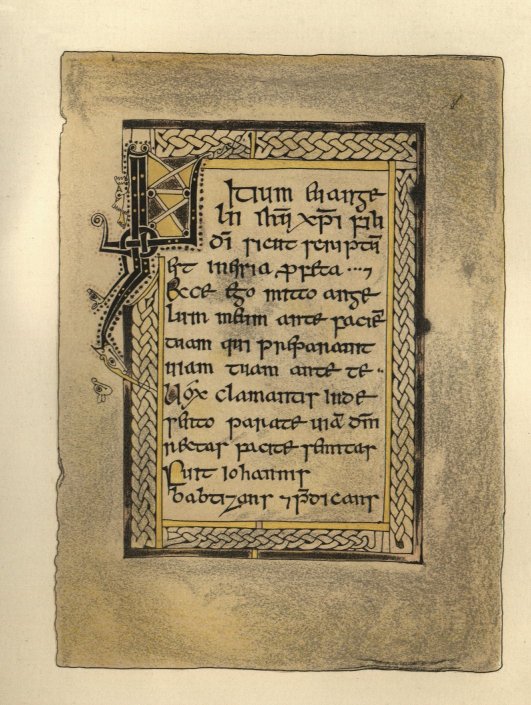 INItium euange
lii ihū xp̄i filii
dī sicut scriptū
est in esaia ꝓfeta
Ecce ego mitto ange
lum meum ante faciē
tuam qui preparauit
uiam tuam ante te
Uox clamantis inde
serto parate uiā dn̄i
rectas facite semitas
Fuit iohannis
babtizans ⁊ p̄dicans